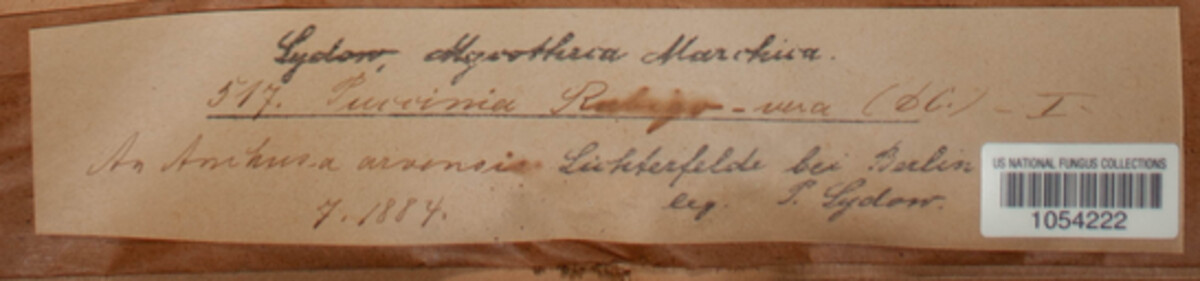 Sydow, Mycotheca Marchica.
517. Puccinia Rubigo-vera (DC.) - I.
An Anchusa arvensis Lichterfelde bei Berlin
7. 1884. leg. P. Sydow.
US NATIONAL FUNGUS COLLECTIONS
1054222